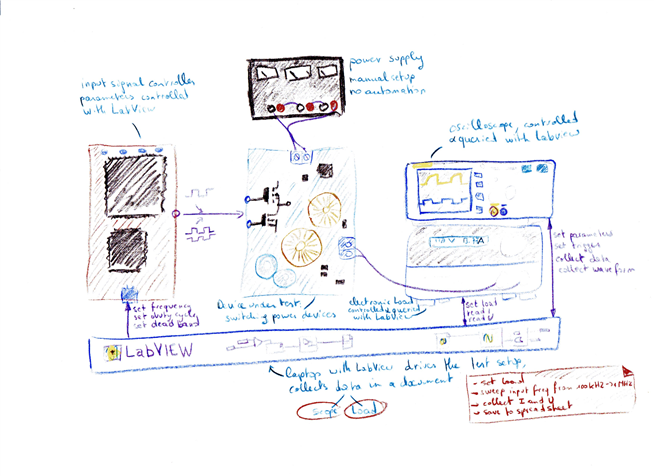 power supply
manual setup
no automation
input signal controller
parameters controlled
with LabView
oscilloscope, controlled
& queried with Labview
set parameters
set trigger
collect data
collect waveform
set frequency
set duty cycle
set dead band
Device under test
switching power devices
electronic Load
controlled & queried
with LabView
set load
read I
read V
LabVIEW
Laptop with LabView drives the test setup,
collects data in a document
scope Load
- set Load
- sweep input freq from 100kHz -> 1MHz
- collect I and V
- save to spreadsheet